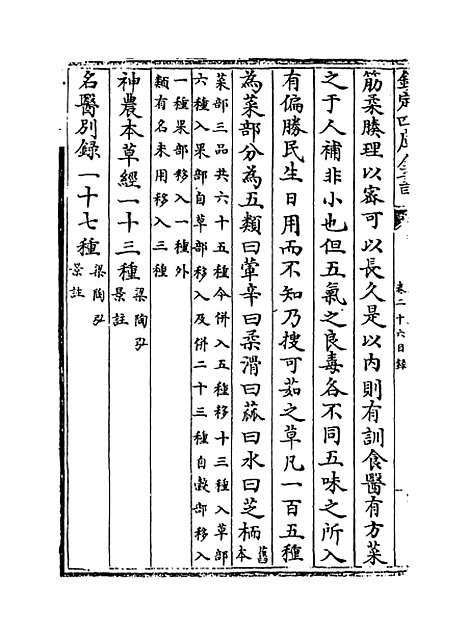 欽定四庫全書
卷二十六目錄
筋柔腠理以密可以長久是以内則有訓食醫有方菜
之于人補非小也但五氣之良毒各不同五味之所入
有偏勝民生日用而不知乃搜可茹之草凡一百五種
為菜部分為五類曰葷辛曰柔滑曰蓏曰水曰芝栭舊本
菜部三品共六十五種今併入五種移十三種入草部
六種入果部自草部移入及併二十三種自穀部移入
一種果部移入一種外
類有名未用移入三種
神農本草經一十三種梁陶弘
景註
名醫别録一十七種梁陶弘
景註